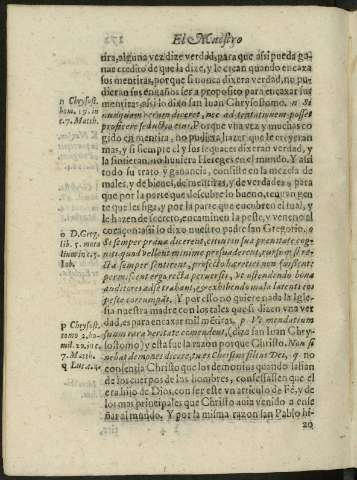 El Maestro
tira, alguna vez dize verdad, para que assi pueda ga-
nar credito de que la dize, y le crean quando encaxa
sos mentiras, porque si nunca dixera verdad, no pu-
dieran sus engaños ser a proposito para encaxar sus
mentiras assi lo dixo san Iuan Chrysostomo. n Si
nunquam verum diceret, nec ad tentationem posset
proficere seductio eius. Porque vna vez y muchas co
gido en mentira, no pudiera hazer que le creyeran
mas, y si siempre el y los sequaces dixeran verdad, y
la sintieran, no huuiera Hereges en el mundo. Y assi
todo su trato y ganancia, consiste en la mezcla de
males, y de bienes, de mentiras, y de verdades para
que por la parte que descubre lo bueno, tengan gen
te que les siga, y por la parte que encubren el mal, y
le hazen de secreto, encaminen la peste, y veneno al
coraçon assi lo dixo nuestro padre san Gregorio. o
Si semper praua dicerent, citius in sua prauitate cog-
niti, quod vellent minime persuaderent, rursum si re-
cta semper sentirent, profecto hæretici non fuissent
permiscent ergo recta peruersis, vt ostendendo bona
auditores ad se trahant, & exhibendo mala latenti eos
peste corrumpāt. Y por esso no quiere nada la Igle
sia nuestra madre con los tales que si dizen vna ver
dad, es para encaxar mil mētiras. p Vt mendatium
suum rara veritate comendent, (dize san Iuan Chry-
sostomo) y esta fue la razon porque Christo. Non si
nebat demones dicere, tu es Christus filius Dei, q no
consentia Christo que los demonios quando salian
de los cuerpos de los hombres, confessassen que el
era hijo de Dios, con ser este vn articulo de Fè, y de
los mas principales que Christo auia venido a ense
ñar al mundo. Y por la misma razon san Pablo hi-
zo
n Chrysost.
hom. 19. in
c. 7. Matth.
o D. Greg.
lib. 5. mora
lium in c. 5.
Iob.
p Chrysost.
tomo 2. ho-
mil. 20. in c.
7. Matth.
q Luc. 4.